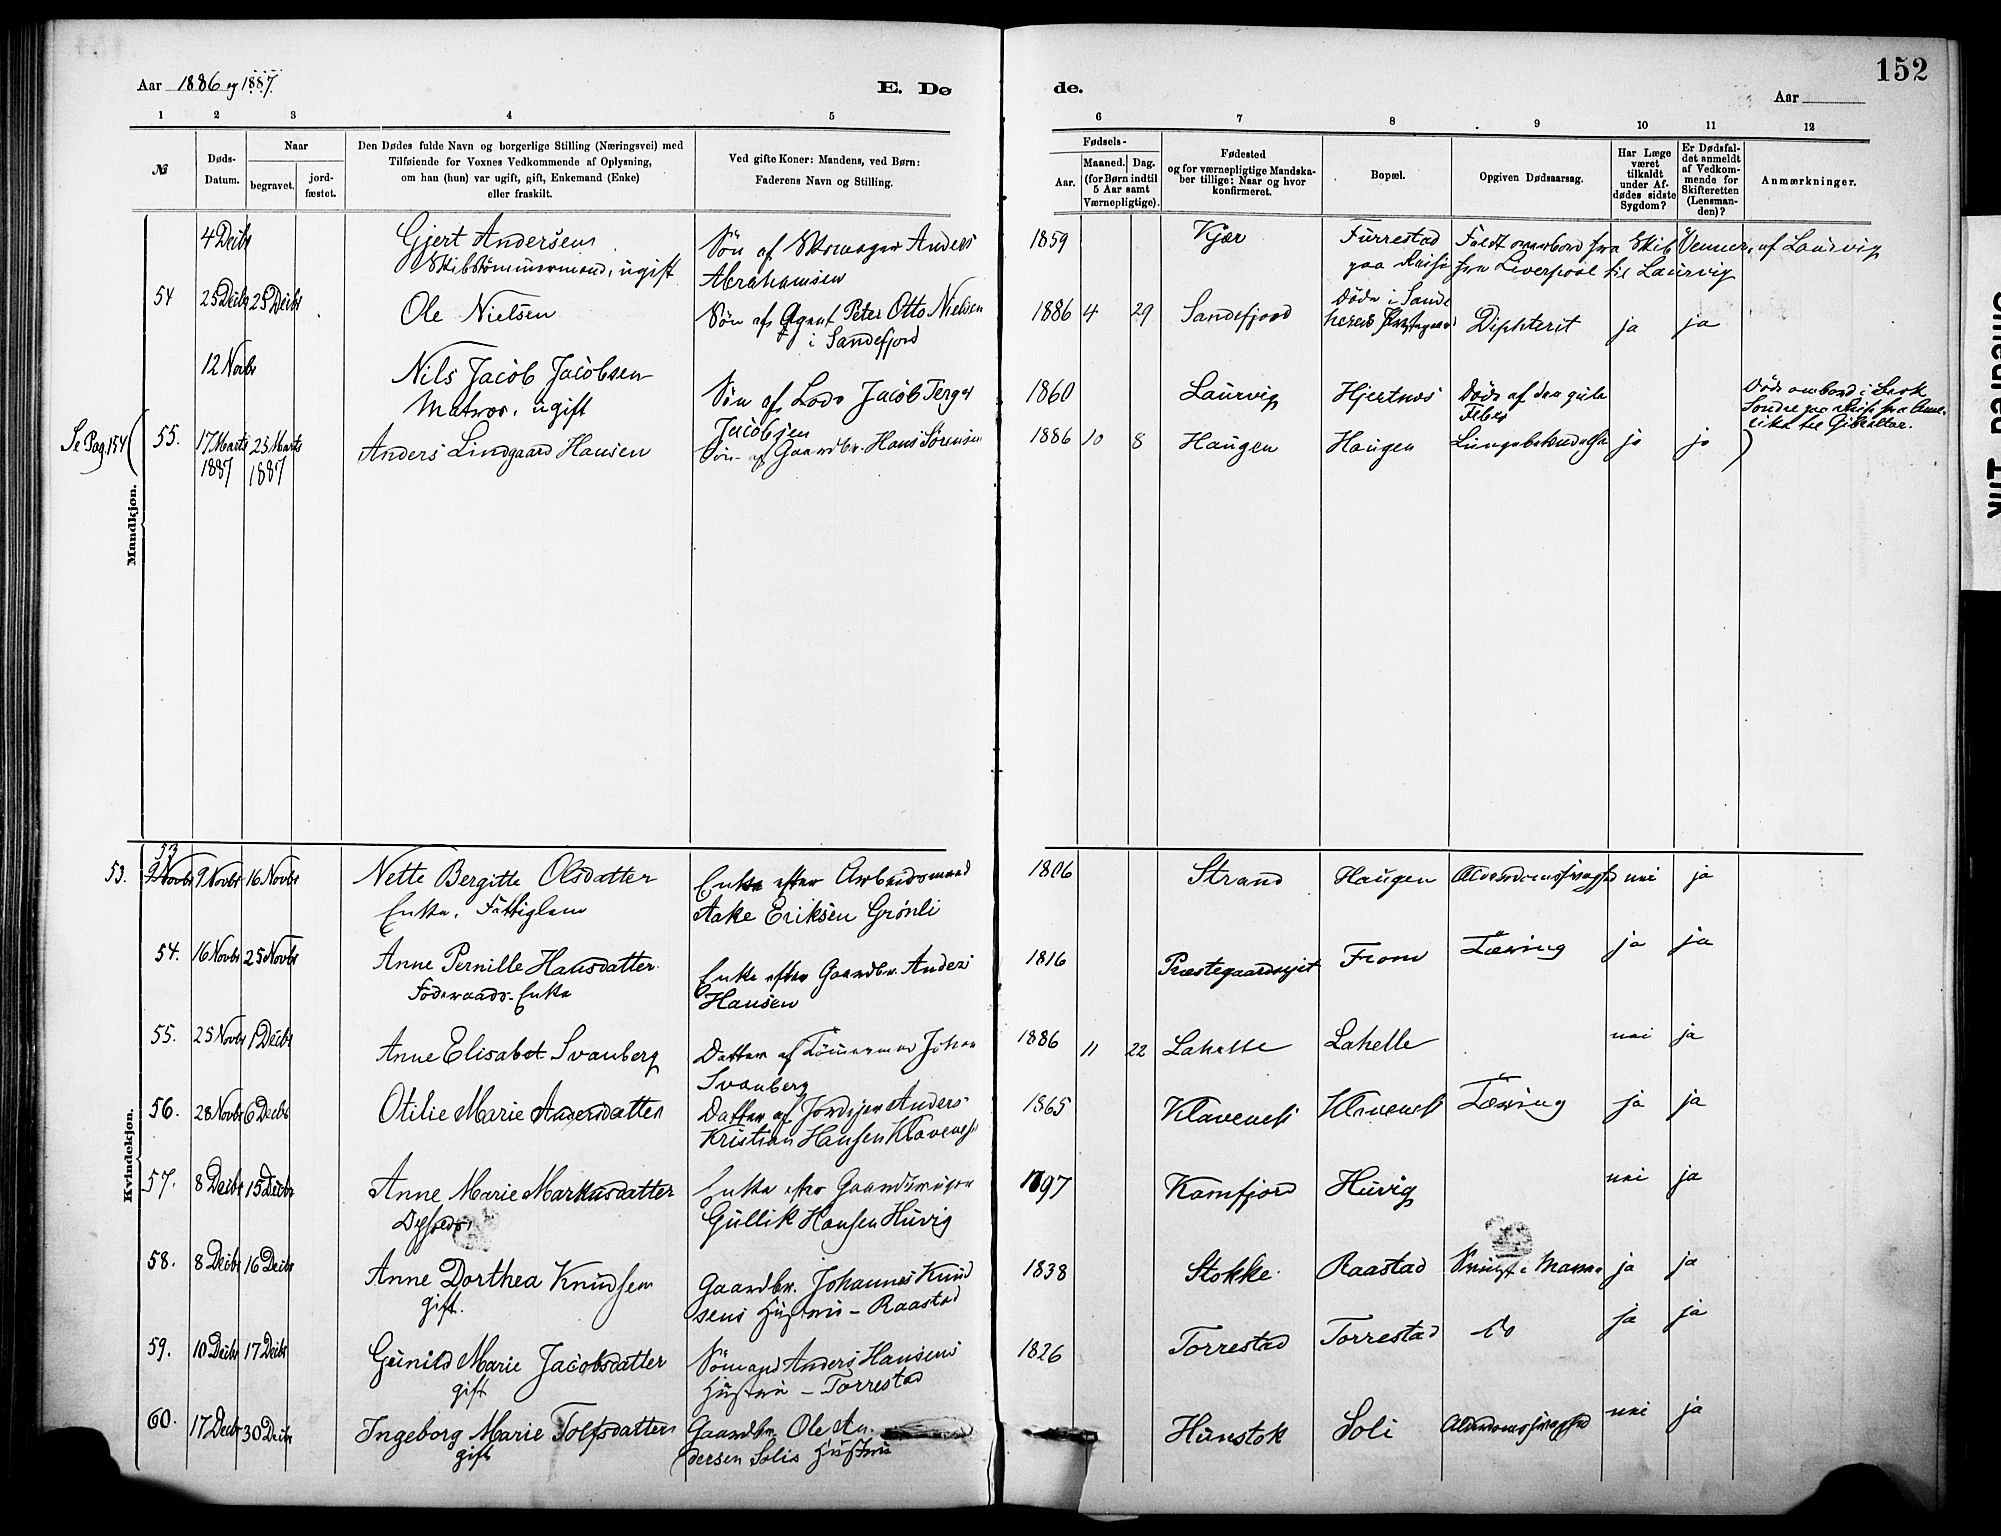 152
Aar 1886 og 1887.
E. Dø
de.
Aar
1 2 3 4 5 6 7 8 9 10 11 12
№
Døds-
Datum.
Naar
begravet.
jord-
fæstet.
Den Dødes fulde Navn og borgerlige Stilling (Næringsvei) med
Tilføiende for Voxnes Vedkommende af Oplysning,
om han (hun) var ugift, gift, Enkemand (Enke)
eller fraskilt.
Ved gifte Koner: Mandens, ved Børn:
Faderens Navn og Stilling.
Fødsels-
Aar.
Maaned. Dag.
(for Børn indtil
5 Aar samt
Værnepligtige).
Fødested
og for værnepligtige Mandska-
ber tillige: Naar og hvor
konfirmeret.
Bopæl.
Opgiven Dødsaarsag.
Har Læge
været
tilkaldt
under Af-
dødes sidste
Sygdom?
Er Dødsfal-
det anmeldt
af Vedkom-
mende for
Skifteretten
(Lensman-
den)?
Anmærkninger.
Mandkjøn.
4 Decbr Gjert Andersen Søn af Anders 1859 Kjær Furrestad Faldt overbord fra Skib Venner, af Laurvig
Skibstømmermand, ugift Abrahamsen paa Reise fra Liverpool til Laurvig
54 25 Decbr 25 Decbr Ole Nielsen Søn af Agent Peter Otto Nielsen 1886 4 29 Sandefjord Døde i Sande
i Sandefjord Diphterit ja ja
12 Novbr Nils Jacob Jacobsen Søn af Lods Jacob Terger 1860 Laurvig Hjertnes Døde af den gule Døde ombord i Bark
Matros, ugift Jacobsen Feber Gibraltar.
Se Pag. 154 ( 55. 17 Marts 25 Marts Anders Lindgaard Hansen Søn af Gaardbr. Hans Sørensen 1886 10 8 Haugen Haugen Lungebetændelse ja ja )
1887 1887
Kvindekjøn.
53. 53 9 Novbr 9 Novbr 16 Novbr Nette Bergitte Olsdatter Enke efter Arbeidsmand 1806 Strand Haugen Alderdomssvaghed nei ja
Enke, Fattiglem Aake Eriksen Grönli
54. 16 Novbr 25 Novbr Anne Pernille Hansdatter Enke efter Gaardbr. Anders 1816 Præstegaardsejet From Tæring ja ja
Föderaads-Enke Hansen
55. 25 Novbr 1 Decbr Anne Elisabet Svanberg Datter af Tömmermand Johan 1886 11 22 Lahelle Lahelle nei ja
Svanberg
56. 28 Novbr 6 Decbr Otilie Marie Andersdatter Datter af Jordejer Anders 1865 Klavenes Klavenes Tæring ja ja
Kristian Hansen Klavenes
57. 8 Decbr 15 Decbr Anne Marie Markusdatter Enke efter Gaardbruger 1797 Kamfjord Huvig nei ja
Gullik Hansen Huvig
58. 8 Decbr 16 Decbr Anne Dorthea Knudsen Gaardbr. Johannes Knud 1838 Stokke Raastad ja ja
gift. sens Hustru – Raastad
59. 10 Decbr 17 Decbr Gunild Marie Jacobsdatter Sömand Anders Hansens 1826 Torrestad Torrestad Do ja ja
gift Hustru – Torrestad
60. 17 Decbr 30 Decbr Ingeborg Marie Tolfsdatter Gaardbr. Ole An- Hunstok Soli Alderdomssvaghed nei ja
gift dersen Solis Hustru